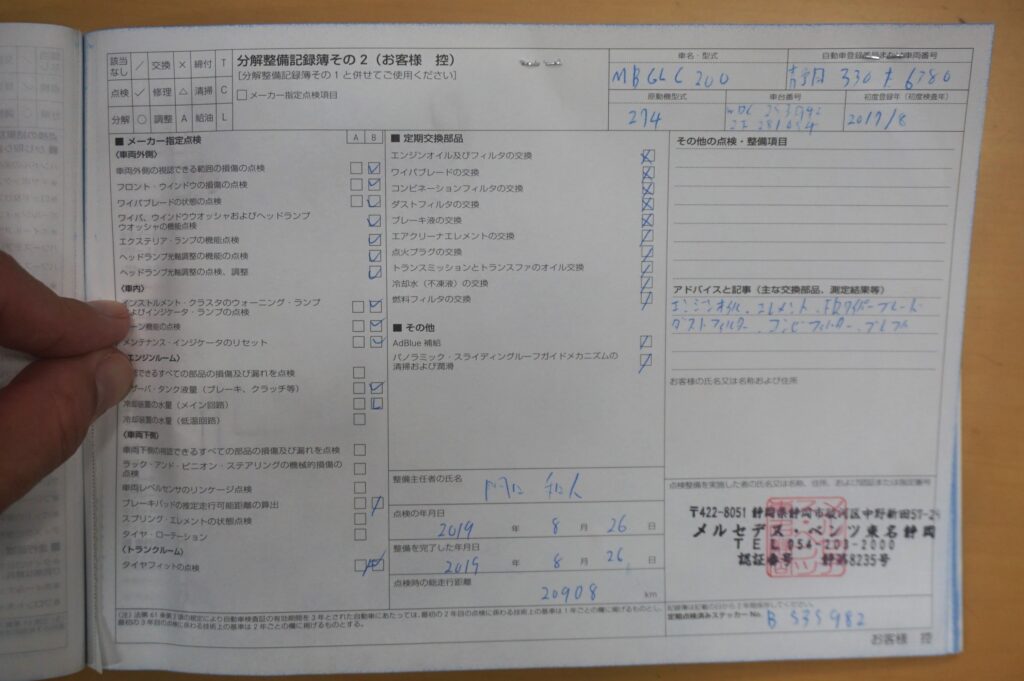 該当なし ／ 交換 × 締付 T
点検 ✓ 修理 △ 清掃 C
分解 ○ 調整 A 給油 L
分解整備記録簿その2（お客様　控）
[分解整備記録簿その1と併せてご使用ください]
□メーカー指定点検項目
車名・型式
MB GLC 200
自動車登録番号または車両番号
330 6780
原動機型式
274
車台番号
初度登録年（初度検査年）
2017/8
■ メーカー指定点検
A B
〈車両外側〉
車両外側の視認できる範囲の損傷の点検
フロント・ウインドウの損傷の点検
ワイパブレードの状態の点検
ワイパ、ウインドウウオッシャおよびヘッドランプ
ウオッシャの機能点検
エクステリア・ランプの機能点検
ヘッドランプ光軸調整の機能の点検
ヘッドランプ光軸調整の点検、調整
〈車内〉
インストルメント・クラスタのウォーニング・ランプ
よびインジケータ・ランプの点検
ーン機能の点検
メンテナンス・インジケータのリセット
エンジンルーム〉
できるすべての部品の損傷及び漏れを点検
ザーバ・タンク液量（ブレーキ、クラッチ等）
冷却装置の水量（メイン回路）
冷却装置の水量（低温回路）
〈車両下側〉
車両下側の視認できるすべての部品の損傷及び漏れを点検
ラック・アンド・ピニオン・ステアリングの機械的損傷の
点検
車両レベルセンサのリンケージ点検
ブレーキパッドの推定走行可能距離の算出
スプリング・エレメントの状態点検
タイヤ・ローテーション
〈トランクルーム〉
タイヤフィットの点検
■ 定期交換部品
エンジンオイル及びフィルタの交換
ワイパブレードの交換
コンビネーションフィルタの交換
ダストフィルタの交換
ブレーキ液の交換
エアクリーナエレメントの交換
点火プラグの交換
トランスミッションとトランスファのオイル交換
冷却水（不凍液）の交換
燃料フィルタの交換
■ その他
AdBlue 補給
パノラミック・スライディングルーフガイドメカニズムの
清掃および潤滑
整備主任者の氏名
点検の年月日
2019 年 8 月 26 日
整備を完了した年月日
2019 年 8 月 26 日
点検時の総走行距離
20908 km
その他の点検・整備項目
アドバイスと記事（主な交換部品、測定結果等）
エンジンオイル、エレメント、
ダストフィルター、コンビフィルター、
お客様の氏名又は名称および住所
点検整備を実施した者の氏名又は名称、住所、および認証または指定番号
〒422-8051 静岡県静岡市駿河区中野新田57-2
メルセデス・ベンツ東名静岡
TEL 054-203-2000
認証番号　静第8235号
記録簿は記載の日から2年間保存してください。
定期点検済みステッカー No. B 535982
（注）法第61条第2項の規定により自動車検査証の有効期間を3年とされた自動車にあたっては、最初の2年目の点検に係わる技術上の基準は1年ごとの欄に掲げるものとし、
最初の3年目の点検に係わる技術上の基準は2年ごとの欄に掲げるものとする。
お客様　控